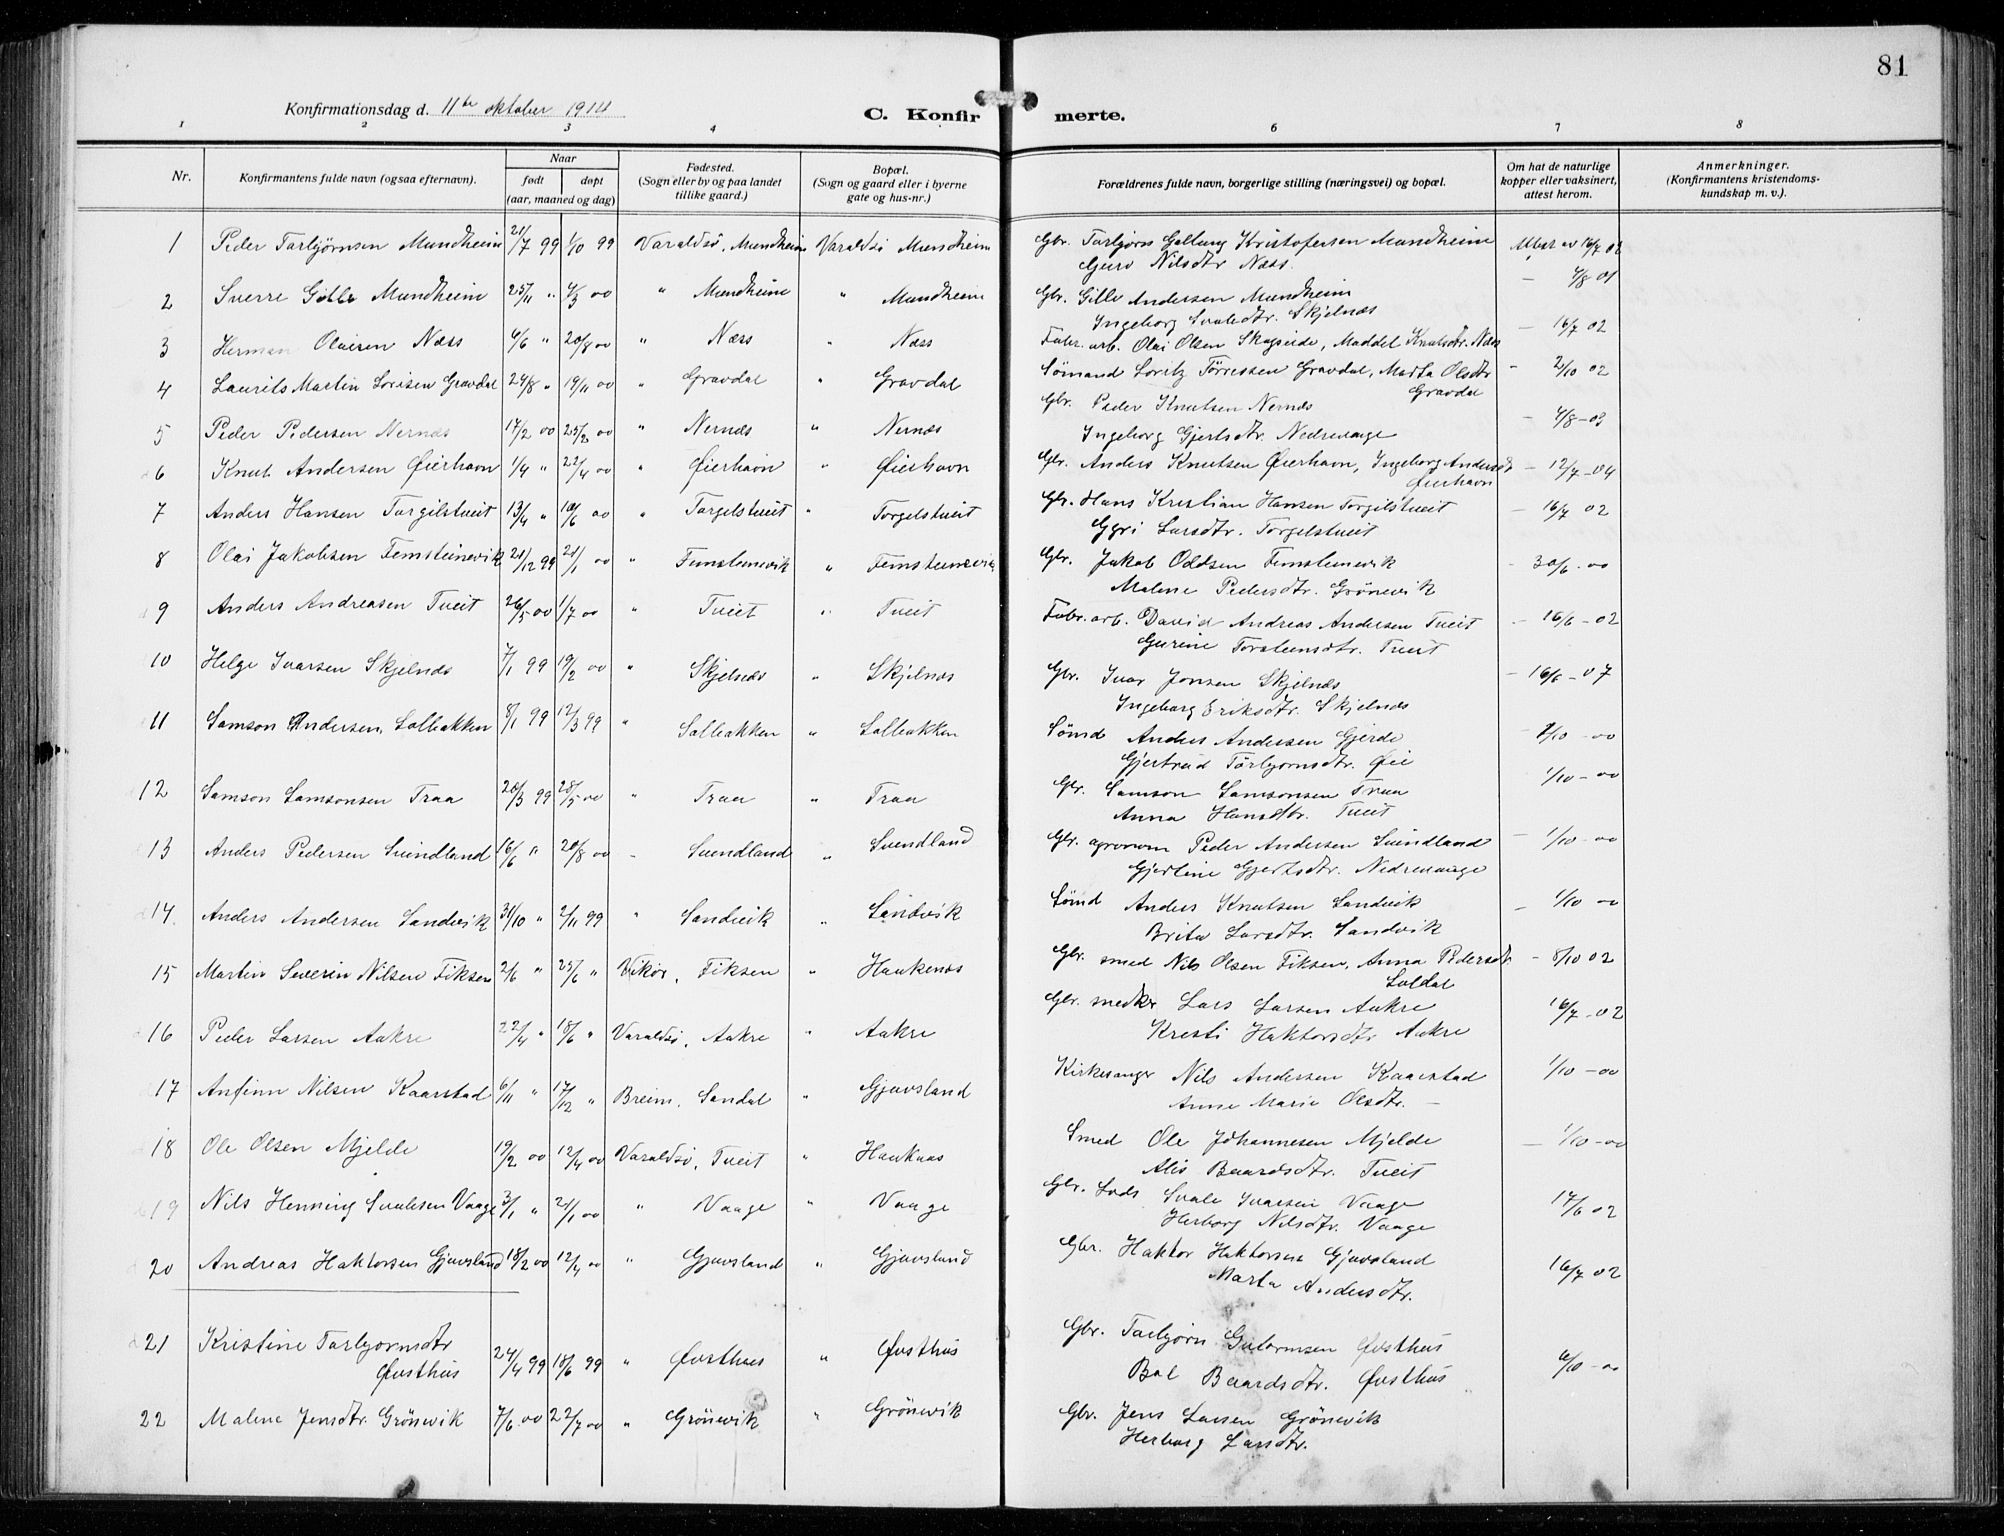 81
Konfirmationsdag d. 11te oktober 1914
C. Konfirmerte.
1 2 3 4 5 6 7 8
Nr. Konfirmantens fulde navn (ogsaa efternavn). Naar født døpt (aar, maaned og dag) Fødested. (Sogn eller by og paa landet tillike gaard.) Bopæl. (Sogn og gaard eller i byerne gate og hus-nr.) Forældrenes fulde navn, borgerlige stilling (næringsvei) og bopæl. Om hat de naturlige kopper eller vaksinert, attest herom. Anmerkninger. (Konfirmantens kristendoms-kundskap m. v.).
1 Peder Torbjørnsen Mundheim 21/7 99 1/10 99 Varaldsö, Mundheim Varaldsö Mundheim Gbr. Torbjørn Gallung Kristofersen Mundheim 16/7 02
Guro Nilsdtr. Næss.
2 Sverre Gille Mundheim 25/11 " 4/3 00 " Mundheim " Mundheim Gbr. Gille Andersen Mundheim — 4/8 01
Ingeborg Svaledtr. Skjelnæs
3 Herman Olaisen Næss 6/6 " 20/8 00 " Næss " Næss Fabr. arb. Olai Olsen Skogseide, Maddel Knutsdtr. Næss — 16/7 02
4 Laurits Martin Loritsen Gravdal 24/8 " 19/11 00 " Gravdal " Gravdal Sömand Loritz Törressen Gravdal, Marta Olsdtr — 2/10 02
Gravdal
5 Peder Pedersen Nernæs 17/2 00 25/2 00 " Nernæs " Nernæs Gbr. Peder Knutsen Nernæs — 4/8 - 03
Ingeborg Gjertsdtr. Nedrevaage
6 Knut Andersen Øierhavn 1/4 " 22/4 00 " Øierhavn " Øierhavn Gbr. Anders Knutsen Øierhavn, Ingeborg Andersdt — 12/7 - 04
Øierhavn
7 Anders Hansen Torgilstveit 13/4 " 10/6 00 " Torgelstveit " Torgelstveit Gbr. Hans Kristian Hansen Torgilstveit — 16/7 02
Ggri Larsdtr. Torgelstveit
8 Olai Jakobsen Femsteinevik 21/12 99 21/1 00 " Femsteinevik " Femsteinevik Gbr. Jakob Oddsen Femsteinevik - 30/6 - 00
Malene Pedersdtr. Grönevik
9 Anders Andreasen Tveit 26/5 00 1/7 00 " Tveit " Tveit Fabr. arb. David Andreas Andersen Tveit — 16/6 - 02
Gurine Torsteinsdtr. Tveit
10 Helge Ivarsen Skjelnæs 7/1 99 19/2 00 " Skjelnæs " Skjelnæs Gbr. Ivar Jonsen Skjelnæs — 16/6 - 07
Ingeborg Eriksdtr. Skjelnæs
11 Samson Andersen Solbakken 8/1 99 12/3 99 " Solbakken " Solbakken Sömd Anders Andersen Gjerde - 1/10 - 00
Gjertrud Torbjornsdtr. Øie
12 Samson Samsonsen Traa 20/3 99 28/5 00 " Traa " Traa Gbr. Samson Samsonsen Traa 1/10 - 00
Anna Hansdtr. Tveit
13 Anders Pedersen Svendland 16/6 " 20/8 00 " Svendland " Svendland Gbr. agronom Peder Andersen Svendland — 1/10 - 00
Gjertine Gjertsdtr. Nedrevaage
14. Anders Andersen Sandvik 31/10 " 2/11 99 " Sandvik " Sandvik Sömd Anders Knutsen Sandvik — 1/10 00
Brita Larsdtr. Sandvik
15 Martin Severin Nilsen Fiksen 2/6 " 25/6 " Vikör, Fiksen " Haukenæs Gbr. smed Nils Olsen Fiksen, Anna Pedersdtr — 8/10 02
Soldal
16 Peder Larsen Aakre 22/4 " 18/6 " Varaldsö, Aakre " Aakre Gbr. snedkr Lars Larsen Aakre 16/7 - 02
Kresti Haktorsdtr Aakre
17 Anfinn Nilsen Kaarstad 6/11 " 17/12 " Breim, Sandal " Gjuvsland Kirkesanger Nils Andersen Kaarstad 1/10 - 00
Anne Marie Olsdtr. —
18 Ole Olsen Mjelde 19/2 00 12/4 00 Varaldsö, Tveit " Haukaas Smed Ole Johannesen Mjelde — 1/10 - 00
Alis Baardsdtr. Tveit
19 Nils Henning Svalesen Vaage 3/1 " 21/1 00 " Vaage " Vaage Gbr. Lods Svale Ivarsen Vaage 17/6 02
Herborg Nilsdtr. Vaage
20 Andreas Haktorsen Gjuvsland 18/2 00 12/4 00 " Gjuvsland " Gjuvsland Gbr. Haktor Haktorsen Gjuvsland 16/7 02
Marta Andersdtr.
21 Kristine Torbjornsdtr Øvsthus 24/4 99 18/6 99 " Øvsthus " Øvsthus Gbr. Torbjörn Gutormsen Øvsthus 6/10 - 00
Bol Baardsdtr. Øvsthus
22 Malene Jensdtr. Grönevik 7/6 00 22/7 00 " Grönevik " Grönevik Gbr. Jens Larsen Grönevik
Herborg Larsdtr.